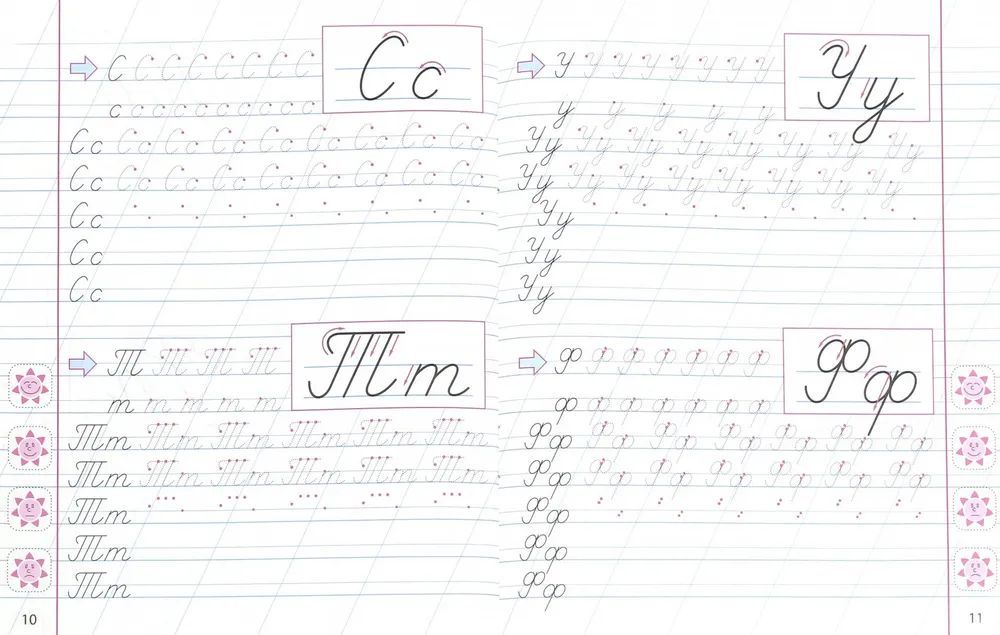 Сс
С С С С С С С С
с с с с с с с с с с с
Сс Сс Сс Сс Сс Сс Сс Сс Сс
Сс Сс Сс Сс Сс Сс Сс Сс Сс
Сс
Сс
Сс
Тт
Т Т Т Т
т т т т т
Тт Тт Тт Тт Тт Тт
Тт Тт Тт Тт Тт Тт
Тт
Тт
Тт
10
Уу
У У У У У У У У
у у у у у
Уу Уу Уу Уу Уу Уу Уу Уу
Уу Уу Уу Уу Уу Уу Уу Уу
Уу
Уу
Уу
Фф
Ф Ф Ф Ф Ф Ф Ф
ф ф ф ф ф ф ф
Фф Фф Фф Фф Фф Фф Фф
Фф Фф Фф Фф Фф Фф Фф
Фф
Фф
Фф
11